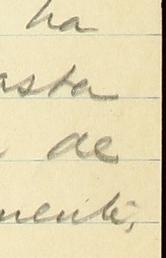 ha
asta
de
mente,